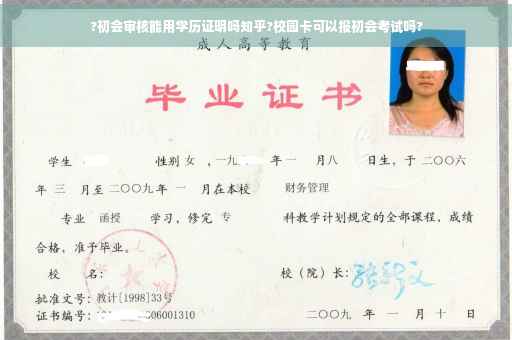 ?初会审核能用学历证明吗知乎?校园卡可以报初会考试吗?
成人高等教育
毕业证书
学生 性别 女 ,一九 年 一 月八 日生，于 二〇〇六
年 三 月至 二〇〇九 年 一 月在本校 财务管理
专业 函授 学习，修完 专 科教学计划规定的全部课程，成绩
合格，准予毕业。
校 名： 校（院）长：
批准文号：教计[1998]33号
证书编号： 06001310 二〇〇九 年 一 月 十 日